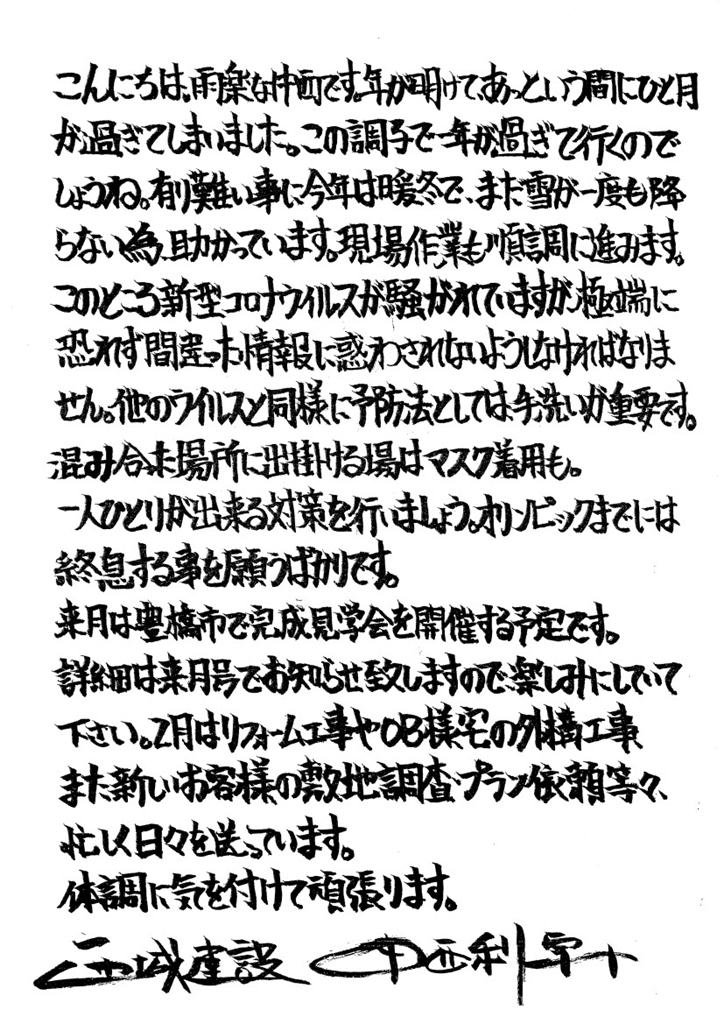 こんにちは、雨楽な中西です。年が明けて、あっという間にひと月
が過ぎてしまいました。この調子で一年が過ぎて行くので
しょうね。有り難い事に今年は暖冬で、まだ雪が一度も降
らない為、助かっています。現場作業も順調に進みます。
このところ新型コロナウイルスが騒がれていますが、極端に
恐れず間違った情報に惑わされないようしなければなりま
せん。他のウイルスと同様に予防法としては手洗いが重要です。
混み合った場所に出掛ける場はマスク着用も。
一人ひとりが出来る対策を行いましょう。オリンピックまでには
終息する事を願うばかりです。
来月は豊橋市で完成見学会を開催する予定です。
詳細は来月号でお知らせ致しますので、楽しみにしていて
下さい。2月はリフォーム工事やOB様宅の外構工事
また新しいお客様の敷地調査・プラン依頼等々、
忙しく日々を送っています。
体調に気を付けて頑張ります。
建設 中西利